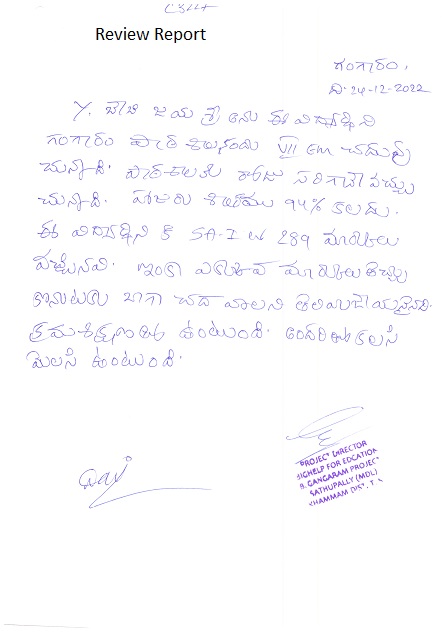 Review Report
గంగారం,
ది. 24-12-2022
Y. బేబి జయ శ్రీ అను ఈ విద్యార్థిని
గంగారం పాఠశాలనందు VII EM చదువు
చున్నది. పాఠశాలకు రోజు సరిగానే వచ్చు
చున్నది. హాజరు శాతము 94% కలదు.
ఈ విద్యార్థిని కి SA-I లో 289 మార్కులు
వచ్చినవి. ఇంకా ఎక్కువ మార్కులు తెచ్చు
కొనుటకు బాగా చదవాలని తెలియజేయనైనది.
క్రమశిక్షణతో ఉంటుంది. అందరితో కలసి
మెలసి ఉంటుంది.
PROJECT DIRECTOR
BIGHELP FOR EDCATION
B. GANGARAM PROJECT
SATHUPALLY (MDL)
KHAMMAM DIST. T.S